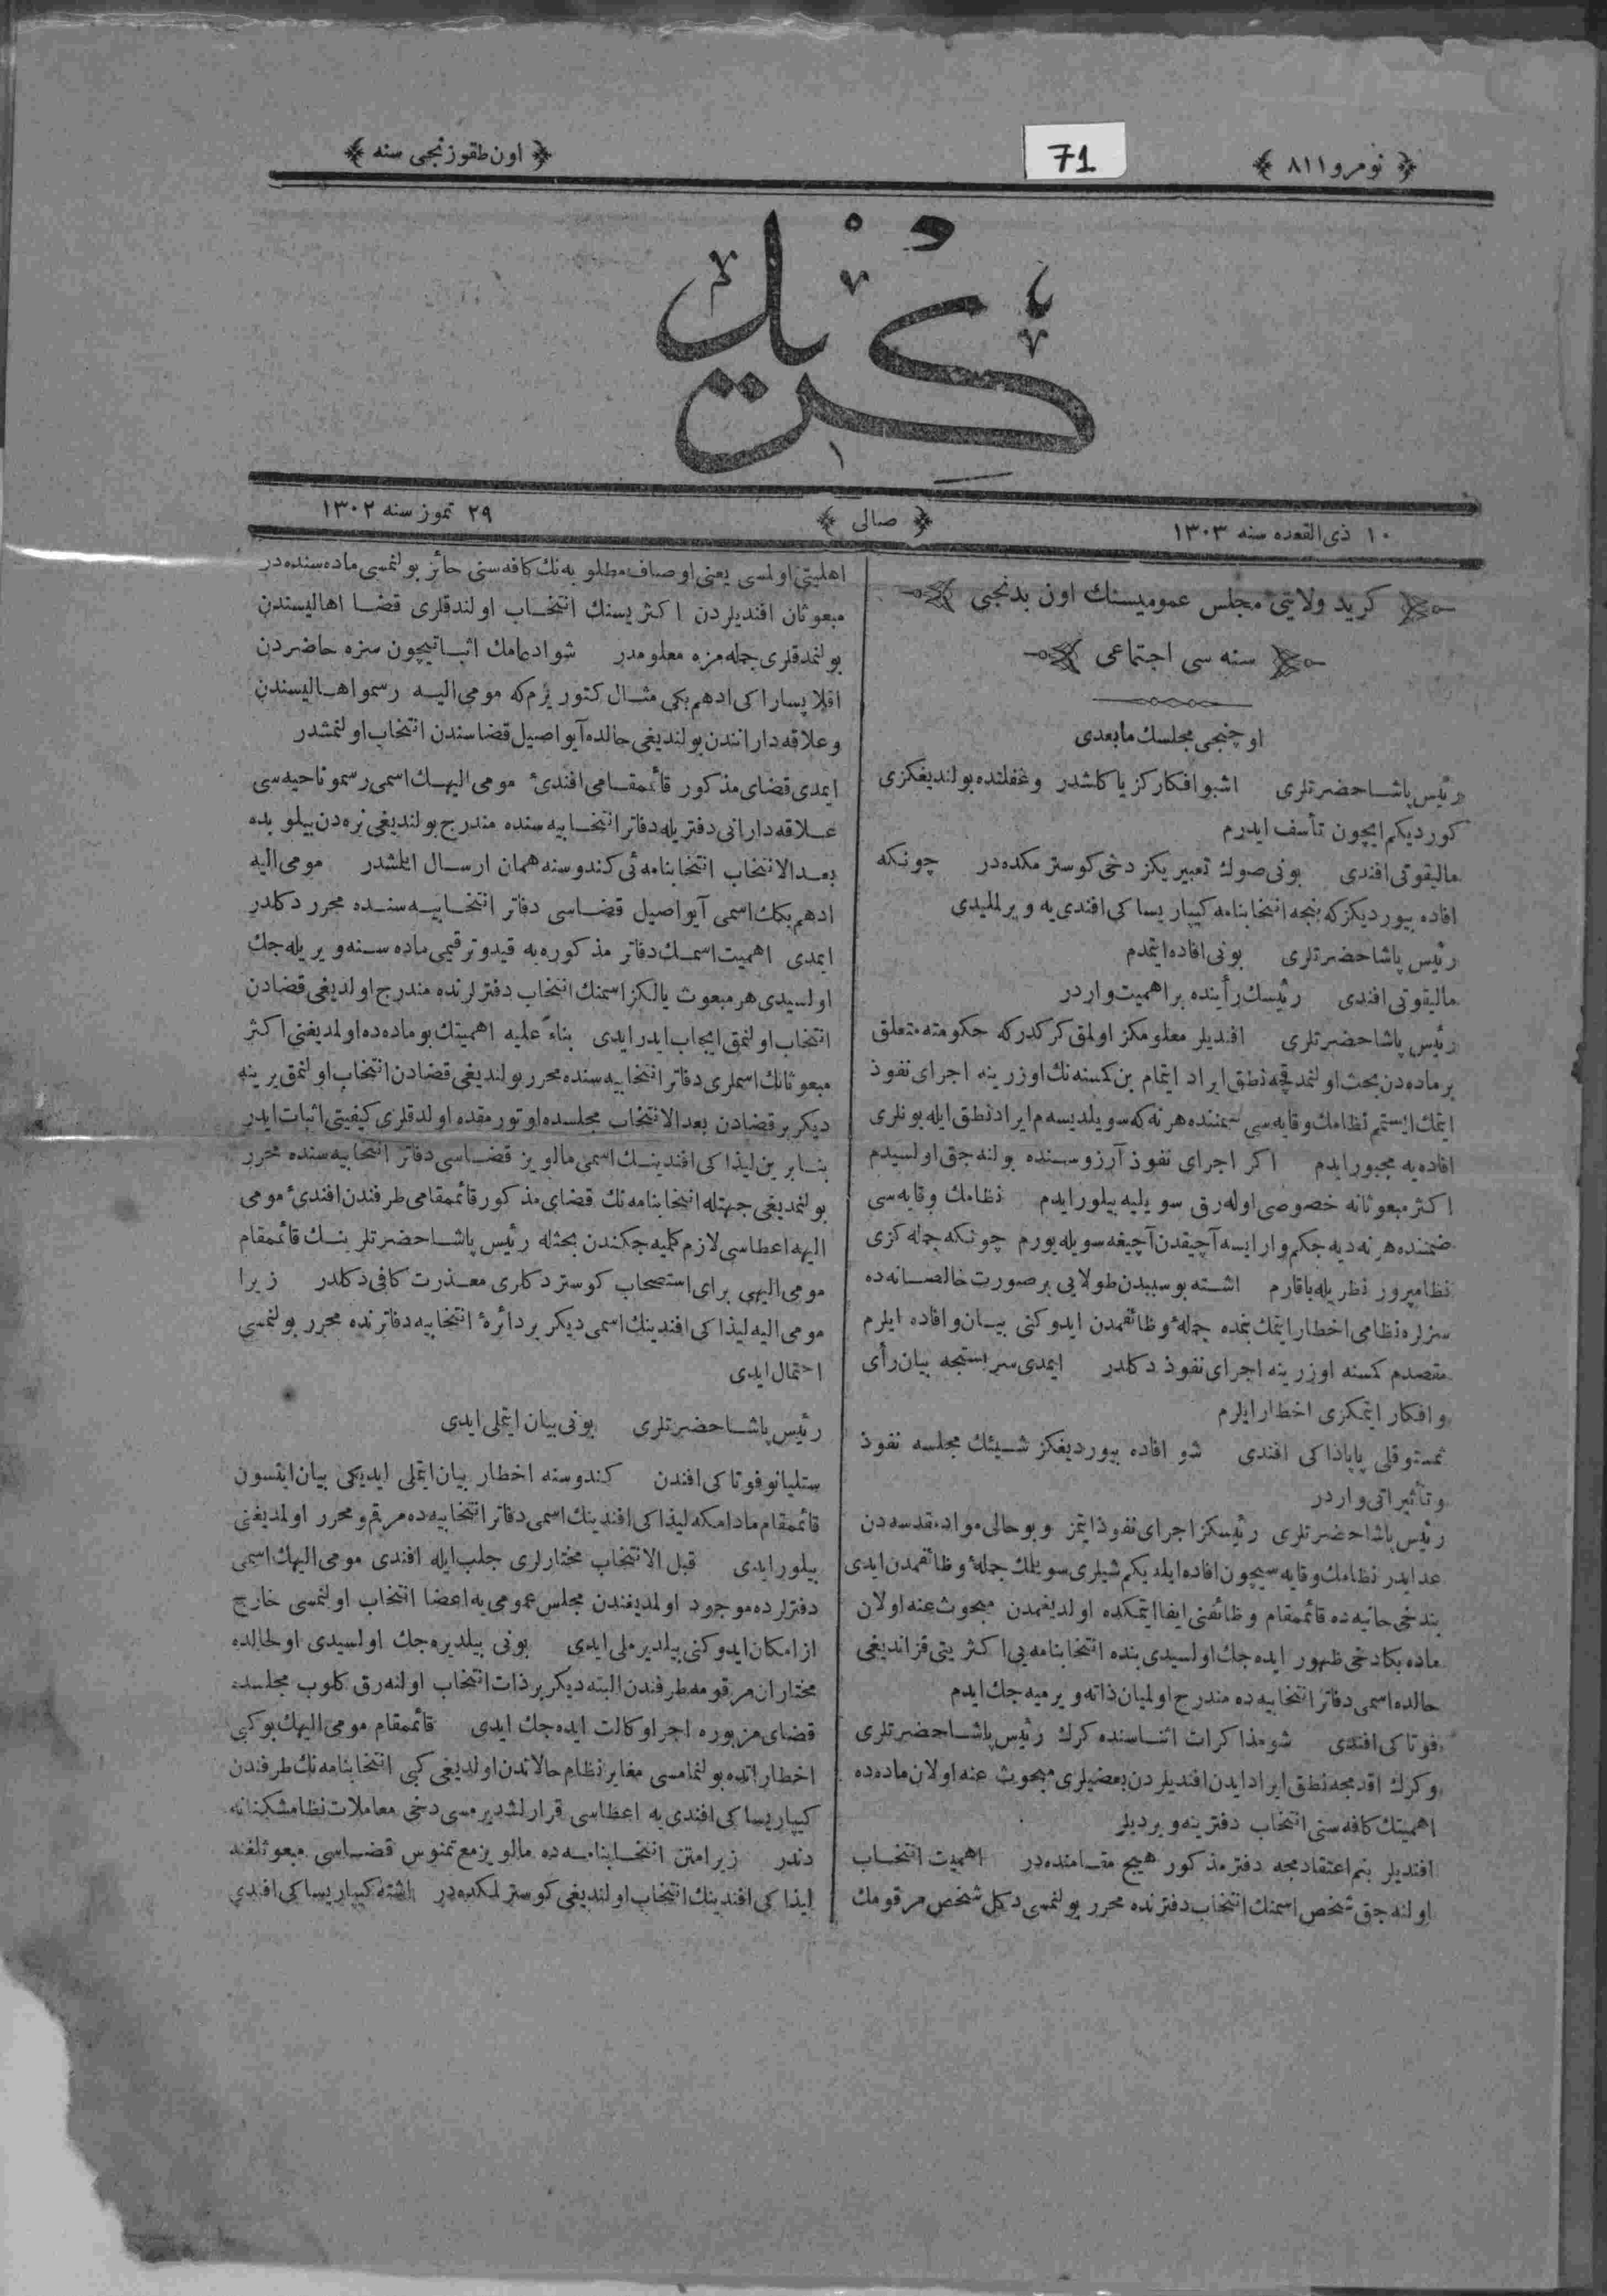 نومرو ٨١١
71
اون طقوزنجی سنه
كريد
١٠ ذی القعده سنه ١٣٠٣
صالی
٢٩ تموز سنه ١٣٠٢
كريد ولايتی مجلس عموميسنك اون يدنجی
سنه سی اجتماعی
اوچنجی مجلسك مابعدی
رئيس پاشا حضرتلری اشبو افكاركز ياكلشدر وغفلتده بولنديغكزی
كورديكم ايچون تأسف ايدرم
ماليقوتی افندی بونی صوك تعبيريكز دخی كوسترمكده در چونكه
افاده بيورديكزكه بنجه انتخابنامه كيپاريسا كی افندی يه ويرلملیدی
رئيس پاشا حضرتلری بونی افاده ايتمدم
ماليقوتی افندی رئيسك رأينده بر اهميت واردر
رئيس پاشا حضرتلری افنديلر معلومكز اولمق كركدركه حكومته متعلق
بر ماده دن بحث اولندقچه نطق ايراد ايتمام بن كمسنه نك اوزرينه اجرای نفوذ
ايتمك ايستمم نظامك وقايه سی ضمننده هر نه كه سويلديسه م ايراد نطق ايله بونلری
افاده يه مجبور ايدم اكر اجرای نفوذ آرزوسنده بولنه جق اولسيدم
اكثر مبعوثانه خصوصی اوله رق سويليه بيلور ايدم نظامك وقايه سی
ضمننده هر نه ديه جكم وار ايسه آچيقدن آچيغه سويله يورم چونكه جمله كزی
نظامپرور نظريله باقارم اشته بو سببدن طولايی بر صورت خالصانه ده
سزلره نظامی اخطار ايتمك بنمده جملۀ وظائفمدن ايدوكنی بيان وافاده ايلرم
مقصدم كمسنه اوزرينه اجرای نفوذ دكلدر ايمدی سربستجه بيان رأی
وافكار ايتمكزی اخطار ايلرم
ثمستوقلی پاپاداكی افندی شو افاده بيورديغكز شيئك مجلسه نفوذ
وتأثيراتی واردر
رئيس پاشا حضرتلری رئيسكز اجرای نفوذ ايتمز وبو حالی مواد مقدسه دن
عد ايدر نظامك وقايه سيچون افاده ايلديكم شيلری سويلمك جملۀ وظائفمدن ايدی
بندخی حانيه ده قائممقام وظائفنی ايفا ايتمكده اولديغمدن مبحوث عنه اولان
ماده بكا دخی ظهور ايده جك اولسيدی بنده انتخابنامه يی اكثريتی قزانديغی
حالده اسمی دفاتر انتخابيه ده مندرج اولميان ذاته ويرميه جك ايدم
فوتاكی افندی شو مذاكرات اثناسنده كرك رئيس پاشا حضرتلری
وكرك اقدمجه نطق ايراد ايدن افنديلردن بعضيلری مبحوث عنه اولان ماده ده
اهميتك كافه سنی انتخاب دفترينه ويرديلر
افنديلر بنم اعتقادمجه دفتر مذكور هيچ مقامنده در اهميت انتخاب
اولنه جق شخص اسمنك انتخاب دفترنده محرر بولنمسی دكل شخص مرقومك
اهليتی اولمسی يعنی اوصاف مطلوبه نك كافه سنی حائز بولنمسی ماده سنده در
مبعوثان افنديلردن اكثريسنك انتخاب اولندقلری قضا اهاليسندن
بولنمدقلری جمله مزه معلومدر شو ادعامك اثباتيچون سزه حاضردن
اقلاپساراكی ادهم بكی مثال كتوريرم كه مومی اليه رسمو اهاليسندن
وعلاقه دارانندن بولنديغی حالده آيواصيل قضاسندن انتخاب اولنمشدر
ايمدی قضای مذكور قائممقامی افندی مومی اليهك اسمی رسمو ناحيه سی
علاقه دارانی دفتريله دفاتر انتخابيه سنده مندرج بولنديغی نره دن بيلوبده
بعد الانتخاب انتخابنامه ئی كندوسنه همان ارسال ايلمشدر مومی اليه
ادهم بكك اسمی آيواصيل قضاسی دفاتر انتخابيه سنده محرر دكلدر
ايمدی اهميت اسمك دفاتر مذكوره يه قيد وترقيمی ماده سنه ويريله جك
اولسيدی هر مبعوث يالكز اسمنك انتخاب دفترلرنده مندرج اولديغی قضادن
انتخاب اولنمق ايجاب ايدر ايدی بناءً عليه اهميتك بو ماده ده اولمديغنی اكثر
مبعوثانك اسملری دفاتر انتخابيه سنده محرر بولنديغی قضادن انتخاب اولنمق يرينه
ديكر بر قضادن بعد الانتخاب مجلسده اوتورمقده اولدقلری كيفيتی اثبات ايدر
بنابرين ليذاكی افندينك اسمی مالويز قضاسی دفاتر انتخابيه سنده محرر
بولنمديغی جهتله انتخابنامه نك قضای مذكور قائممقامی طرفندن افندیٔ مومی
اليهه اعطاسی لازم كلميه جكندن بحثله رئيس پاشا حضرتلرينك قائممقام
مومی اليهی برای استصحاب كوستردكلری معذرت كافی دكلدر زيرا
مومی اليه ليذاكی افندينك اسمی ديكر بر دائرۀ انتخابيه دفاترنده محرر بولنمسی
احتمال ايدی
رئيس پاشا حضرتلری بونی بيان ايتملی ايدی
ستليانو فوتاكی افندن كندوسنه اخطار بيان ايتملی ايديكی بيان ايتسون
قائممقام مادامكه ليذاكی افندينك اسمی دفاتر انتخابيه ده مرقم ومحرر اولمديغنی
بيلور ايدی قبل الانتخاب مختارلری جلب ايله افندی مومی اليهك اسمی
دفترلرده موجود اولمديغندن مجلس عمومی يه اعضا انتخاب اولنمسی خارج
از امكان ايدوكنی بيلديرملی ايدی بونی بيلديره جك اولسيدی اولحالده
مختاران مرقومه طرفندن البته ديكر بر ذات انتخاب اولنه رق كلوب مجلسده
قضای مزبوره اجرا وكالت ايده جك ايدی قائممقام مومی اليهك بو كبی
اخطاراتده بولنمامسی مغاير نظام حالاتدن اولديغی كبی انتخابنامه نك طرفندن
كيپاريساكی افندی يه اعطاسی قرارلشديرمسی دخی معاملات نظامشكنانه
دندر زيرا متن انتخابنامه ده مالويز مع تمنوس قضاسی مبعوثلغنه
ليذاكی افندينك انتخاب اولنديغی كوسترلمكده در اشته كيپاريساكی افندی